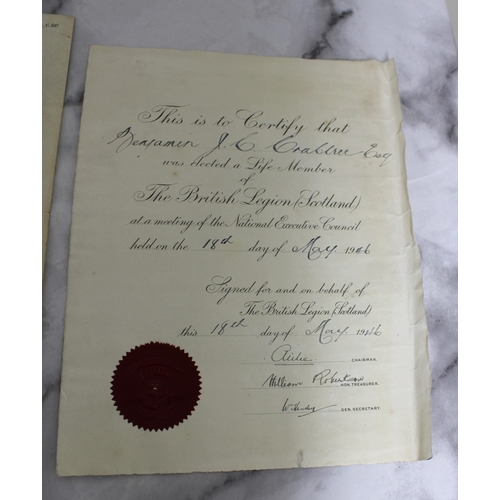 This is to Certify that
Benjamin J. C. Crabtree Esq
was elected a Life Member
of
The British Legion (Scotland)
at a meeting of the National Executive Council
held on the 18th day of May 1946
Signed for and on behalf of
The British Legion (Scotland)
this 18th day of May 1946
Airlie CHAIRMAN.
William Robertson
HON. TREASURER.
GEN. SECRETARY.